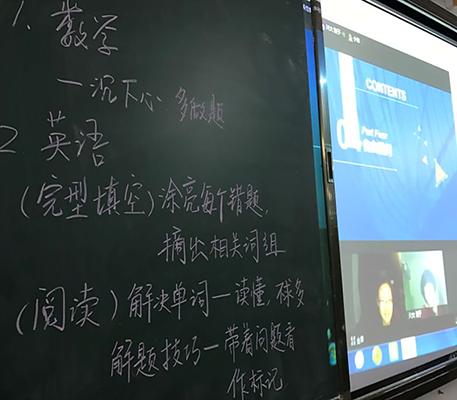 1. 数学
一沉下心 多做题
2 英语
(完型填空)涂亮每个错题,
摘出相关词组
(阅读)解决单词一读懂,不球多
解题技巧一带着问题看
作标记
CONTENTS
Part Four